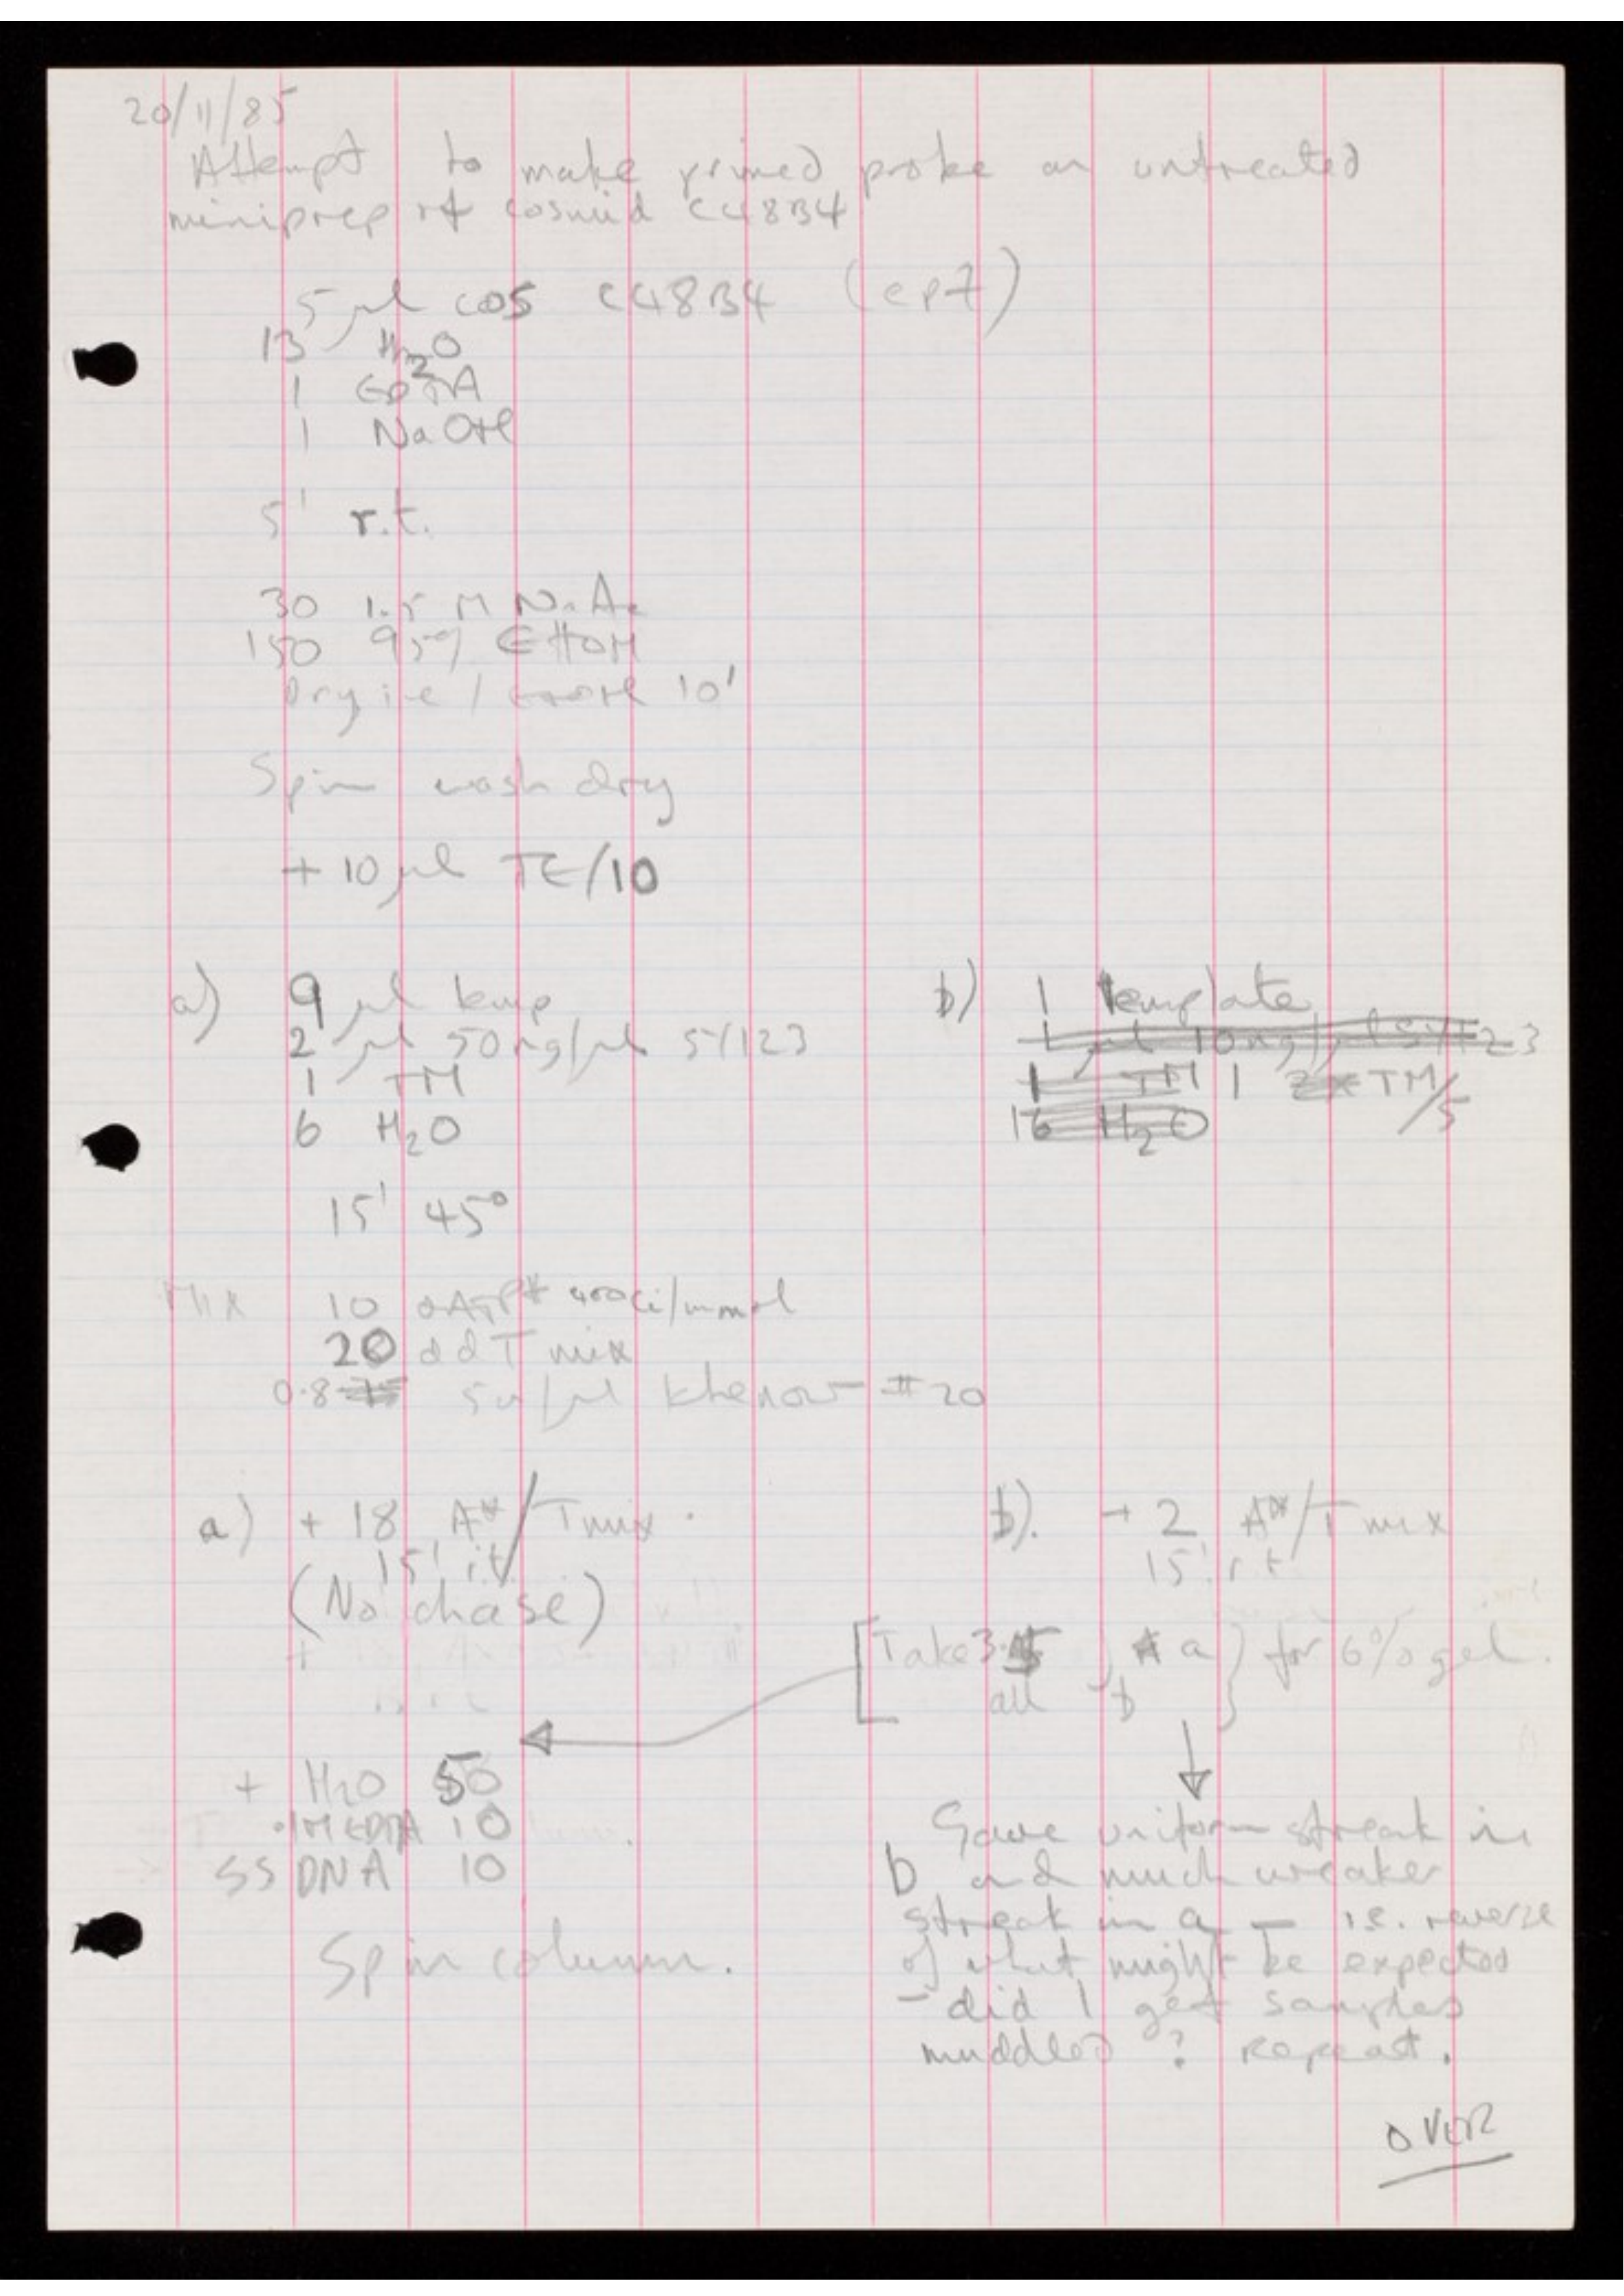 20/11/85
Attempt to make primed probe on untreated
miniprep of cosmid C48B4
5 µl cos C48B4 (ep7)
13 H2O
1 EDTA
1 NaOH
5' r.t.
30 1.5 M NaAc
150 95% EtOH
Dry ice / EtOH 10'
Spin wash dry
+ 10 µl TE/10
a) 9 µl temp
2 µl 50ng/µl SY123
1 TM
6 H2O
15' 45°
b) 1 template
1 µl 10ng/µl SY123
1 TM 1 TM/5
16 H2O
Mix 10 dATP* 400Ci/mmol
20 ddT mix
0.8 5u/µl Klenow #20
a) + 18 A*/T mix.
15' rt
(No chase)
b). + 2 A*/T mix
15' rt
[Take 3 a } for 6% gel.
all b
+ H2O 50
.1M EDTA 10
SS DNA 10
Spin column.
Gave uniform streak in
b and much weaker
streak in a — i.e. reverse
of what might be expected
- did I get samples
muddled? Repeat.
OVER